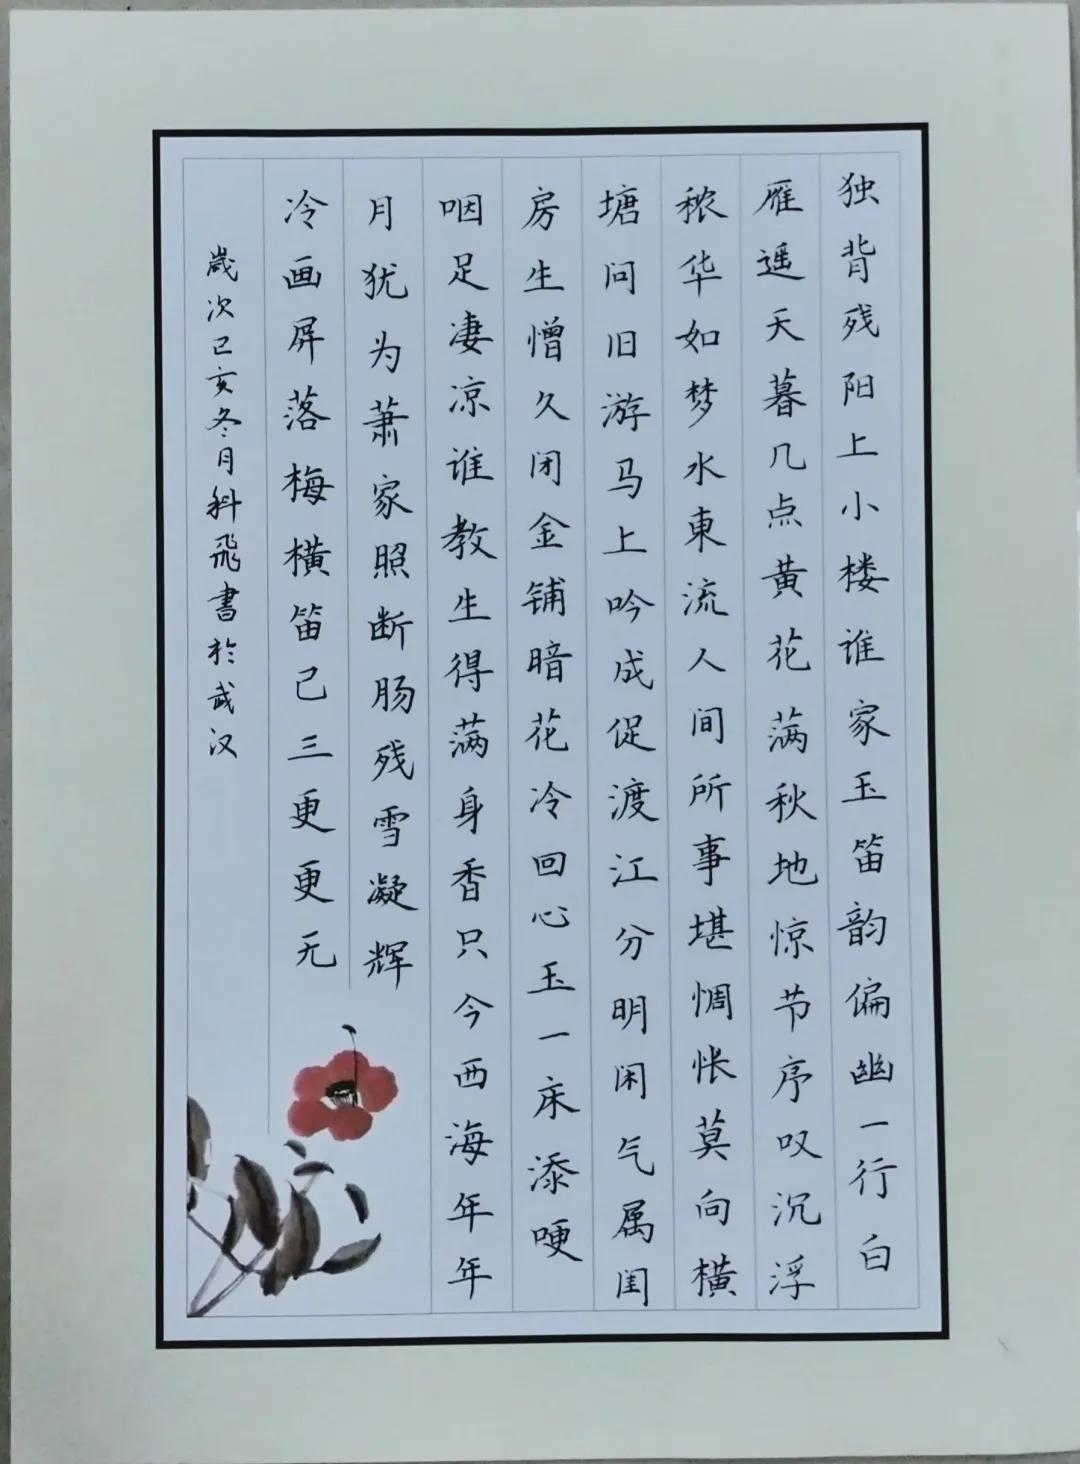 独背残阳上小楼谁家玉笛韵偏幽一行白
雁遥天暮几点黄花满秋地惊节序叹沉浮
秾华如梦水東流人间所事堪惆怅莫向横
塘问旧游马上吟成促渡江分明闲气属闺
房生憎久闭金铺暗花冷回心玉一床添哽
咽足凄凉谁教生得满身香只今西海年年
月犹为萧家照断肠残雪凝辉
冷画屏落梅横笛已三更更无
歳次己亥冬月科飛書於武汉